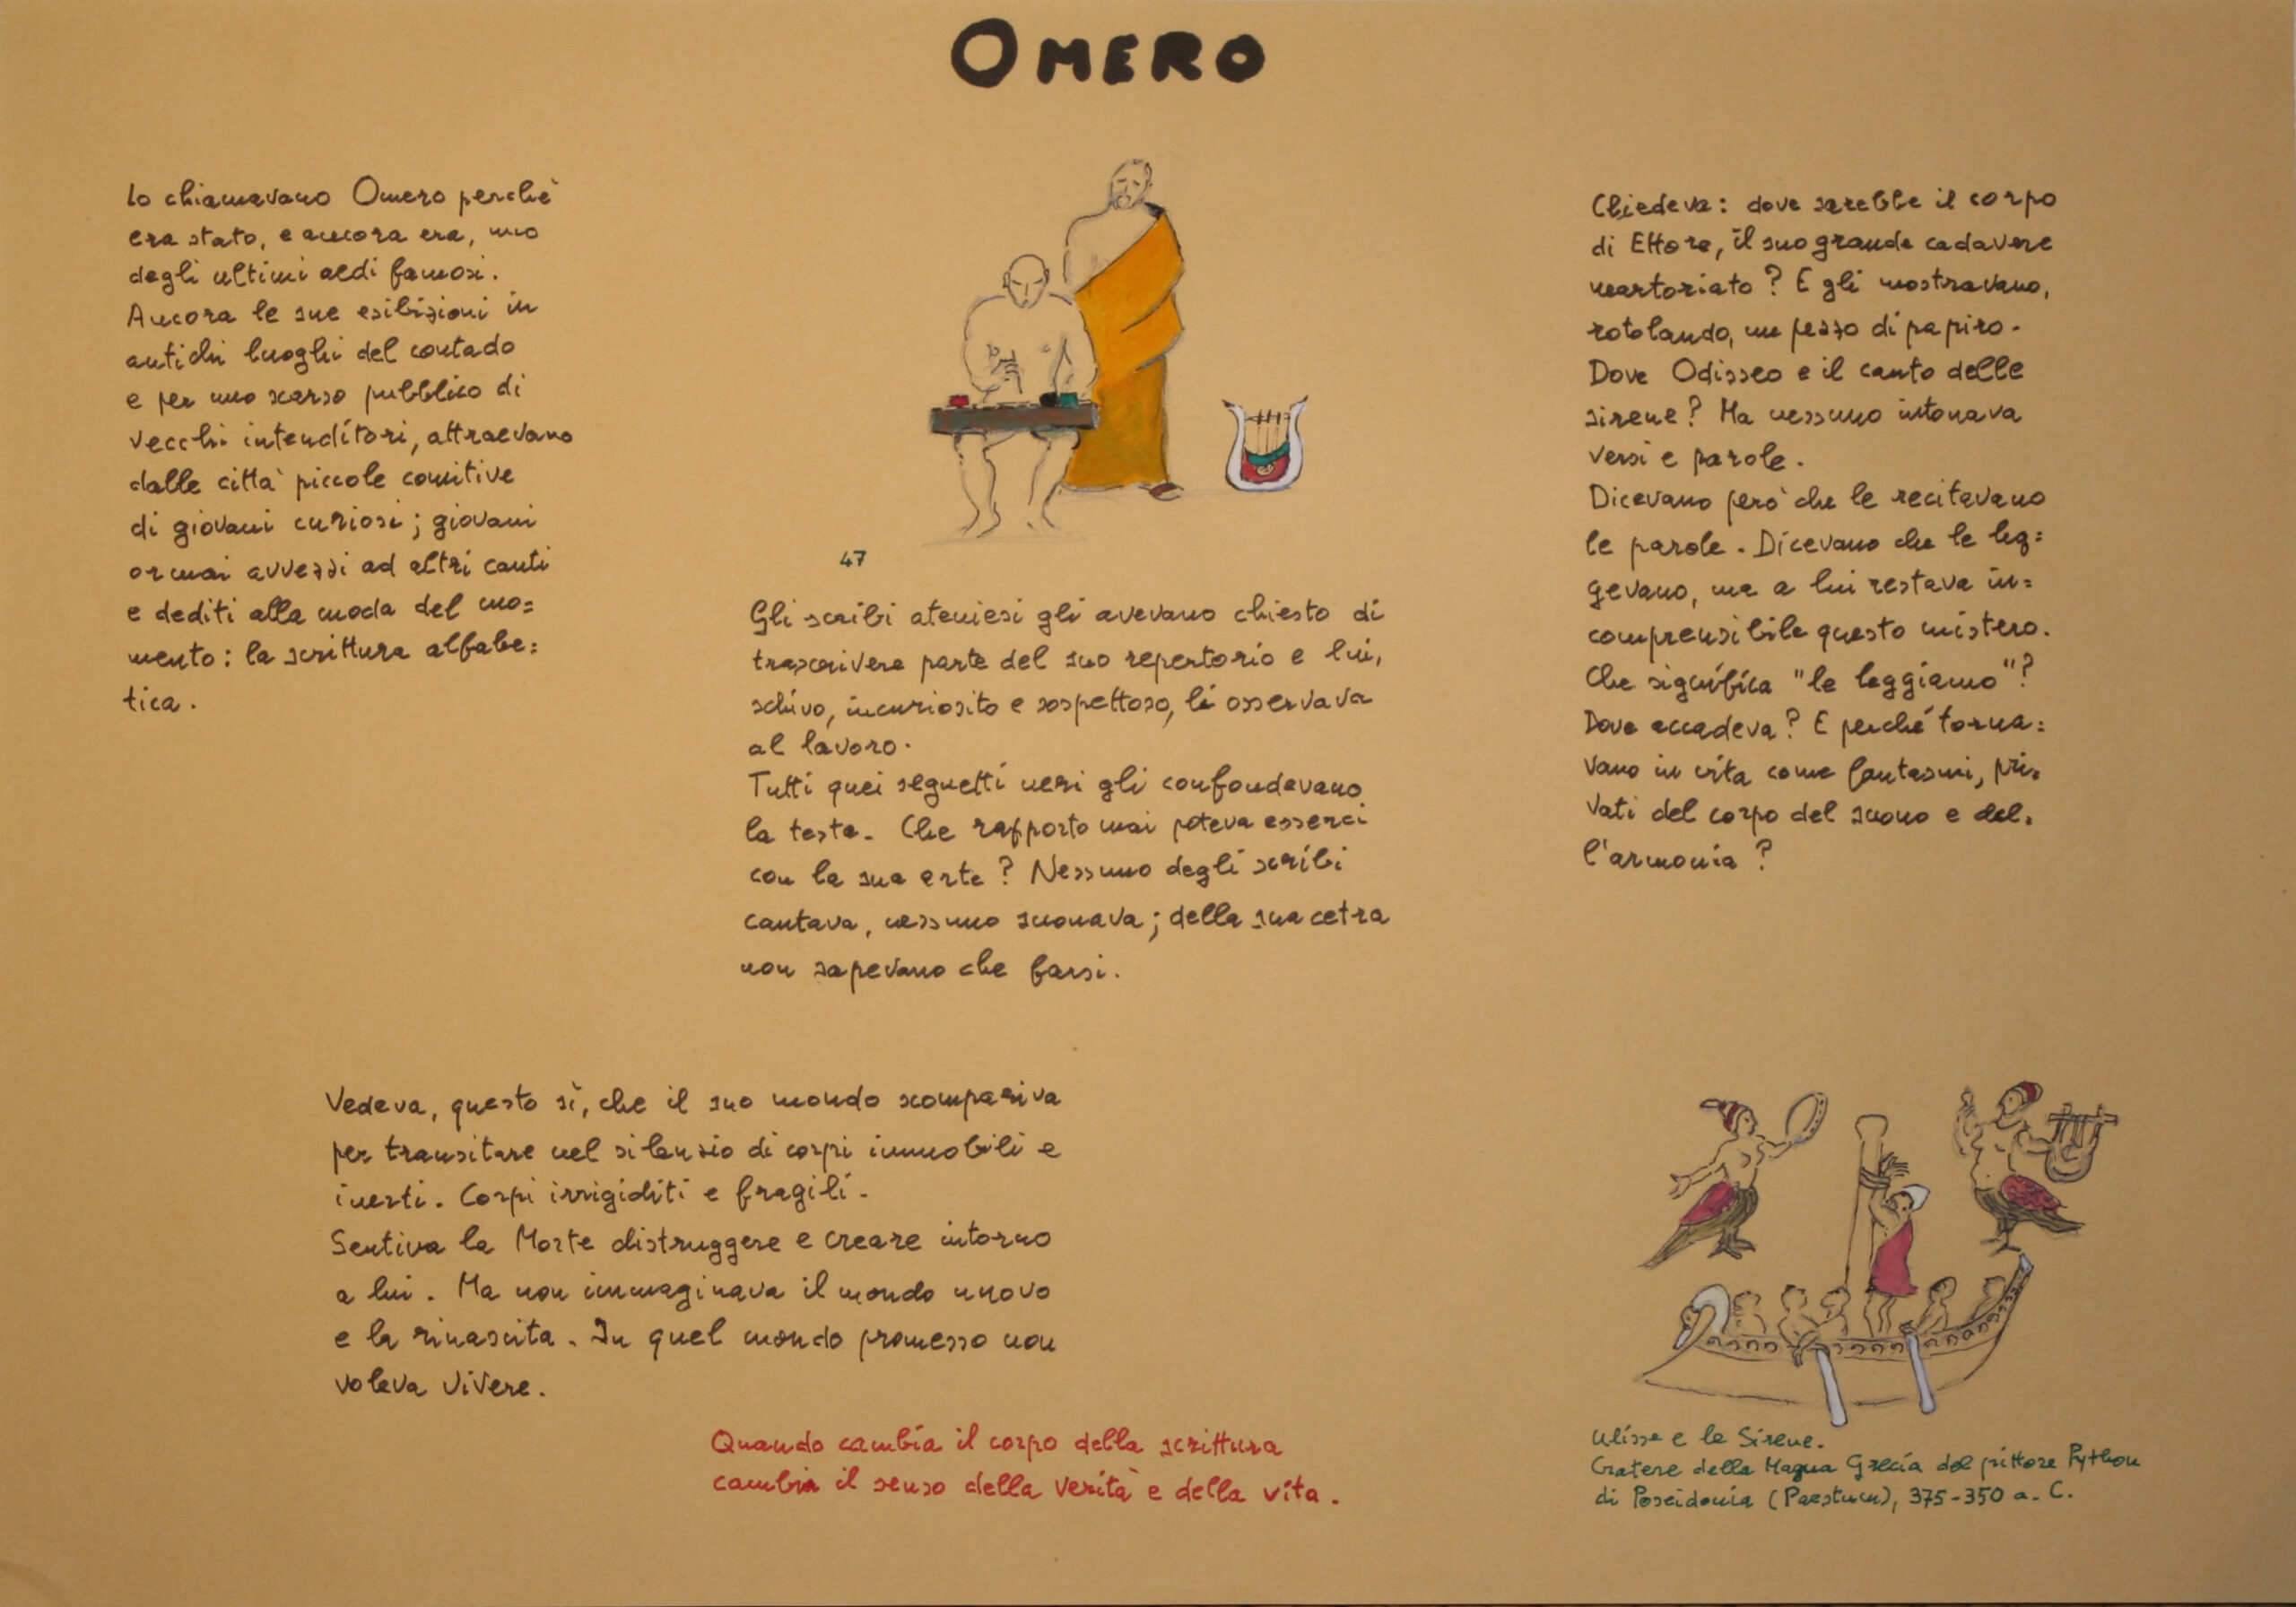 OMERO
lo chiamavano Omero perchè
era stato, e ancora era, uno
degli ultimi aedi famosi.
Ancora le sue esibizioni in
antichi luoghi del contado
e per uno scarso pubblico di
vecchi intenditori, attraevano
dalle città piccole comitive
di giovani curiosi; giovani
ormai avvezzi ad altri canti
e dediti alla moda del mo=
mento: la scrittura alfabe=
tica.
47
Gli scribi ateniesi gli avevano chiesto di
trascrivere parte del suo repertorio e lui,
schivo, incuriosito e sospettoso, li osservava
al lavoro.
Tutti quei segnetti neri gli confondevano
la testa. Che rapporto mai poteva esserci
con la sua arte? Nessuno degli scribi
cantava, nessuno suonava; della sua cetra
non sapevano che farsi.
Chiedeva: dove sarebbe il corpo
di Ettore, il suo grande cadavere
martoriato? E gli mostravano,
rotolando, un pezzo di papiro.
Dove Odisseo e il canto delle
sirene? Ma nessuno intonava
versi e parole.
Dicevano però che le recitavano
le parole. Dicevano che le leg=
gevano, ma a lui restava in=
comprensibile questo mistero.
Che significa "le leggiamo"?
Dove accadeva? E perché torna=
vano in vita come fantasmi, pri=
vati del corpo del suono e del=
l'armonia?
Vedeva, questo sì, che il suo mondo scompariva
per transitare nel silenzio di corpi immobili e
inerti. Corpi irrigiditi e fragili.
Sentiva la Morte distruggere e creare intorno
a lui. Ma non immaginava il mondo nuovo
e la rinascita. In quel mondo promesso non
voleva vivere.
Quando cambia il corpo della scrittura
cambia il senso della verità e della vita.
Ulisse e le Sirene.
Cratere della Magna Grecia del pittore Python
di Poseidonia (Paestum), 375-350 a. C.